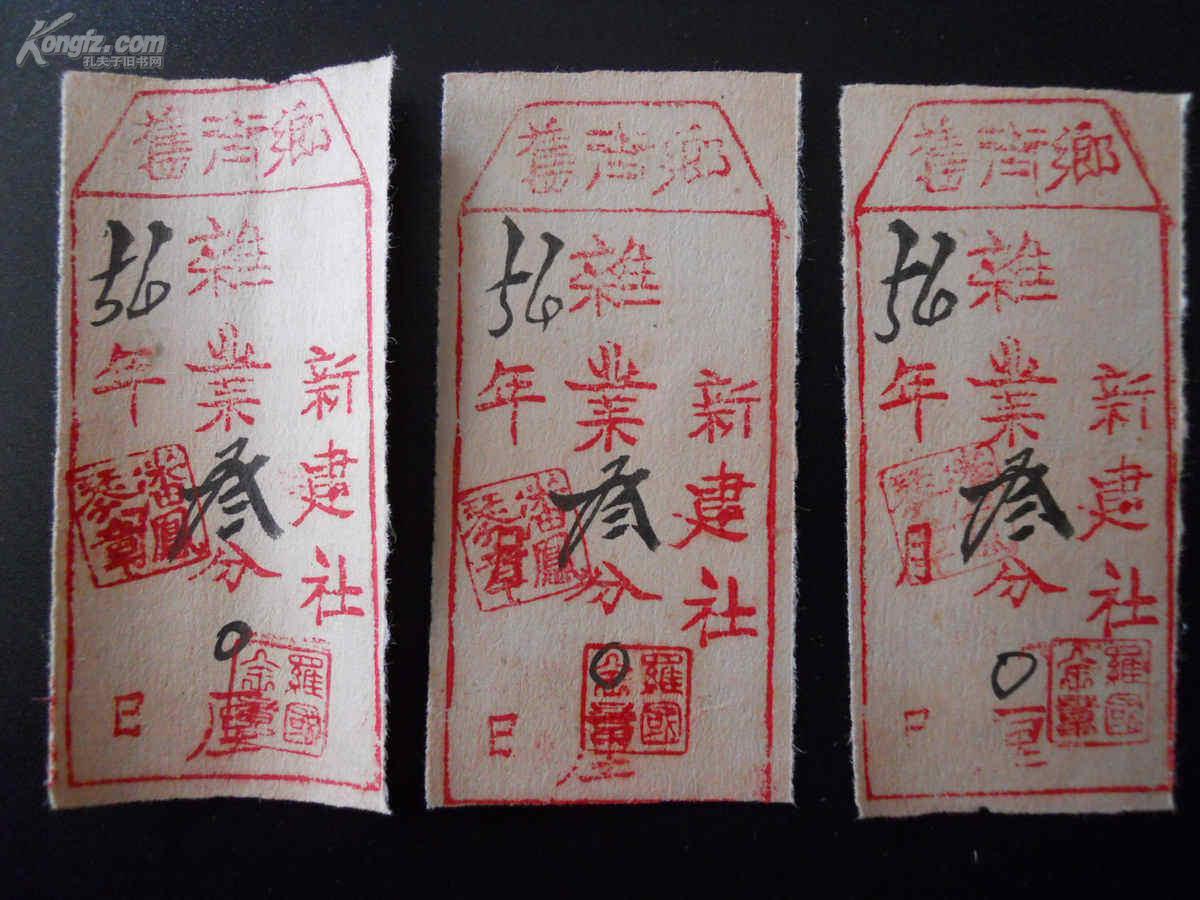 Kongfz.com
孔夫子旧书网
舊街鄉
新建社
雜業叁分0厘
56年日
潘鳳琴章
羅國金章
舊街鄉
新建社
雜業叁分0厘
56年月日
潘鳳琴章
羅國金章
舊街鄉
新建社
雜業叁分0
56年月日
羅國金章